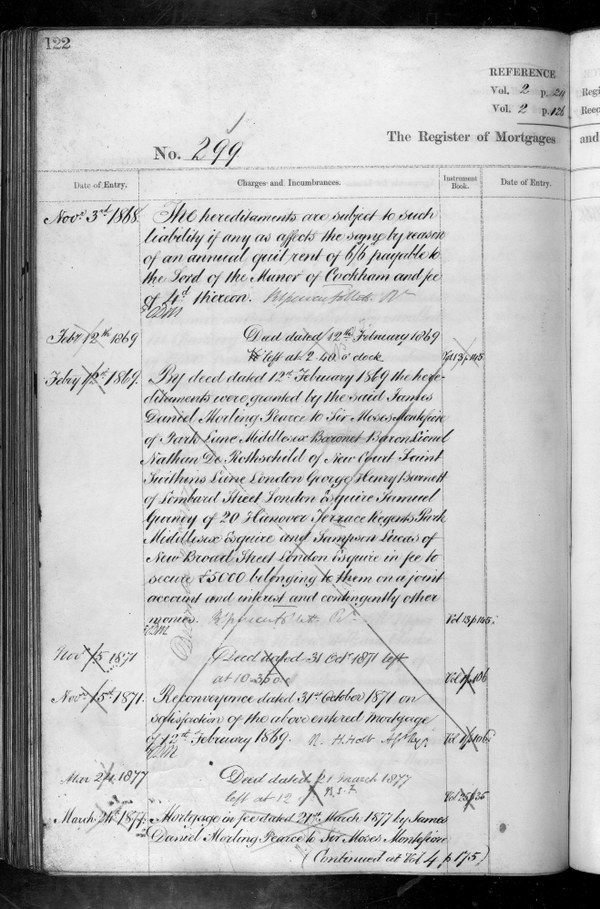 122
REFERENCE
Vol. 2 p. 24
Vol. 2 p. 126
Regi
Reco
The Register of Mortgages
and
No. 299
Date of Entry.
Charges and Incumbrances.
Instrument Book.
Date of Entry.
Novr. 3rd 1868.
The hereditaments are subject to such
liability if any as affects the same by reason
of an annual quit rent of 6/6 payable to
the Lord of the Manor of Cookham and fee
of 4d thereon.
Feby 12th 1869
Deed dated 12th February 1869
left at 2.40 o'clock
Vol 13 p 145
Febry 12th 1869.
By deed dated 12th February 1869 the here-
ditaments were granted by the said James
Daniel Morling Pearce to Sir Moses Montefiore
of Park Lane Middlesex Baronet Baron Lionel
Nathan De Rothschild of New Court Saint
Swithins Lane London George Henry Barnett
of Lombard Street London Esquire Samuel
Gurney of 20 Hanover Terrace Regents Park
Middlesex Esquire and Sampson Lucas of
New Broad Street London Esquire in fee to
secure £5000 belonging to them on a joint
account and interest and contingently other
monies.
Vol 13 p 145
Novr 15 1871
Deed dated 31 Octr 1871 left
at 10.30
Vol 17 p 106
Novr 15th 1871.
Reconveyance dated 31st October 1871 on
satisfaction of the above entered mortgage
of 12th February 1869.
Vol 17 p 106
Mar 24 1877
Deed dated 21 March 1877
left at 12
Vol 25 p 35
March 24th 1877.
Mortgage in fee dated 21st March 1877 by James
Daniel Morling Pearce to Sir Moses Montefiore
(Continued at Vol 4. p 175)